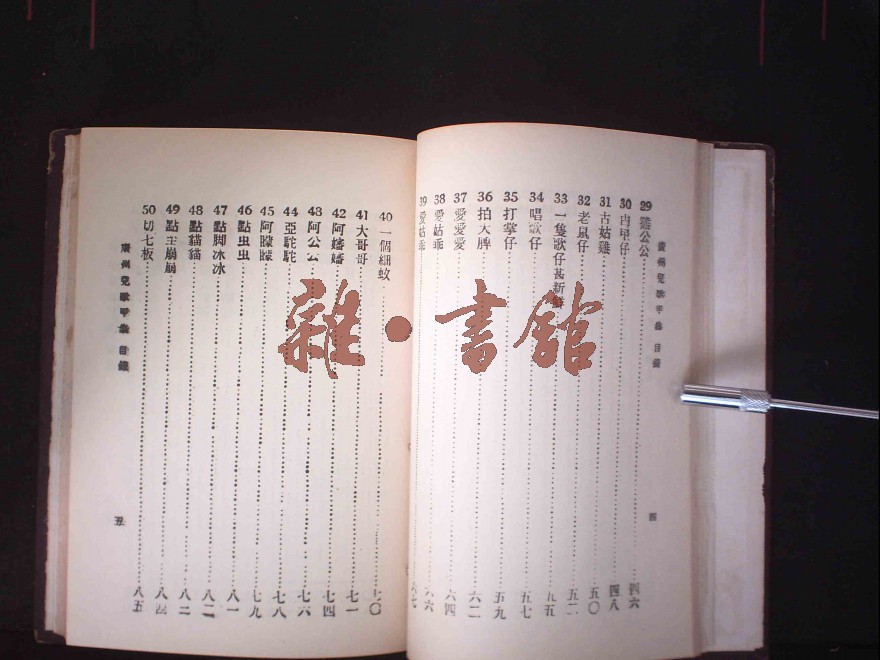 廣州兒歌甲集 目錄
29 雞公公 四六
30 白甲仔 四八
31 古姑雞 五〇
32 老鼠仔 五二
33 一隻歌仔甚新鮮 五五
34 唱歌仔 五七
35 打掌仔 五九
36 拍大脾 六二
37 愛愛愛 六四
38 愛姑乖 六六
39 愛姑乖 六七
四
40 一個細蚊 七〇
41 大哥哥 七一
42 阿嬸嬸 七四
43 阿公公 七六
44 亞駝駝 七八
45 阿朦朦 七九
46 點虫虫 八一
47 點脚冰冰 八二
48 點貓貓 八二
49 點主崩崩 八四
50 切七板 八五
廣州兒歌甲集 目錄
五
雜·書館